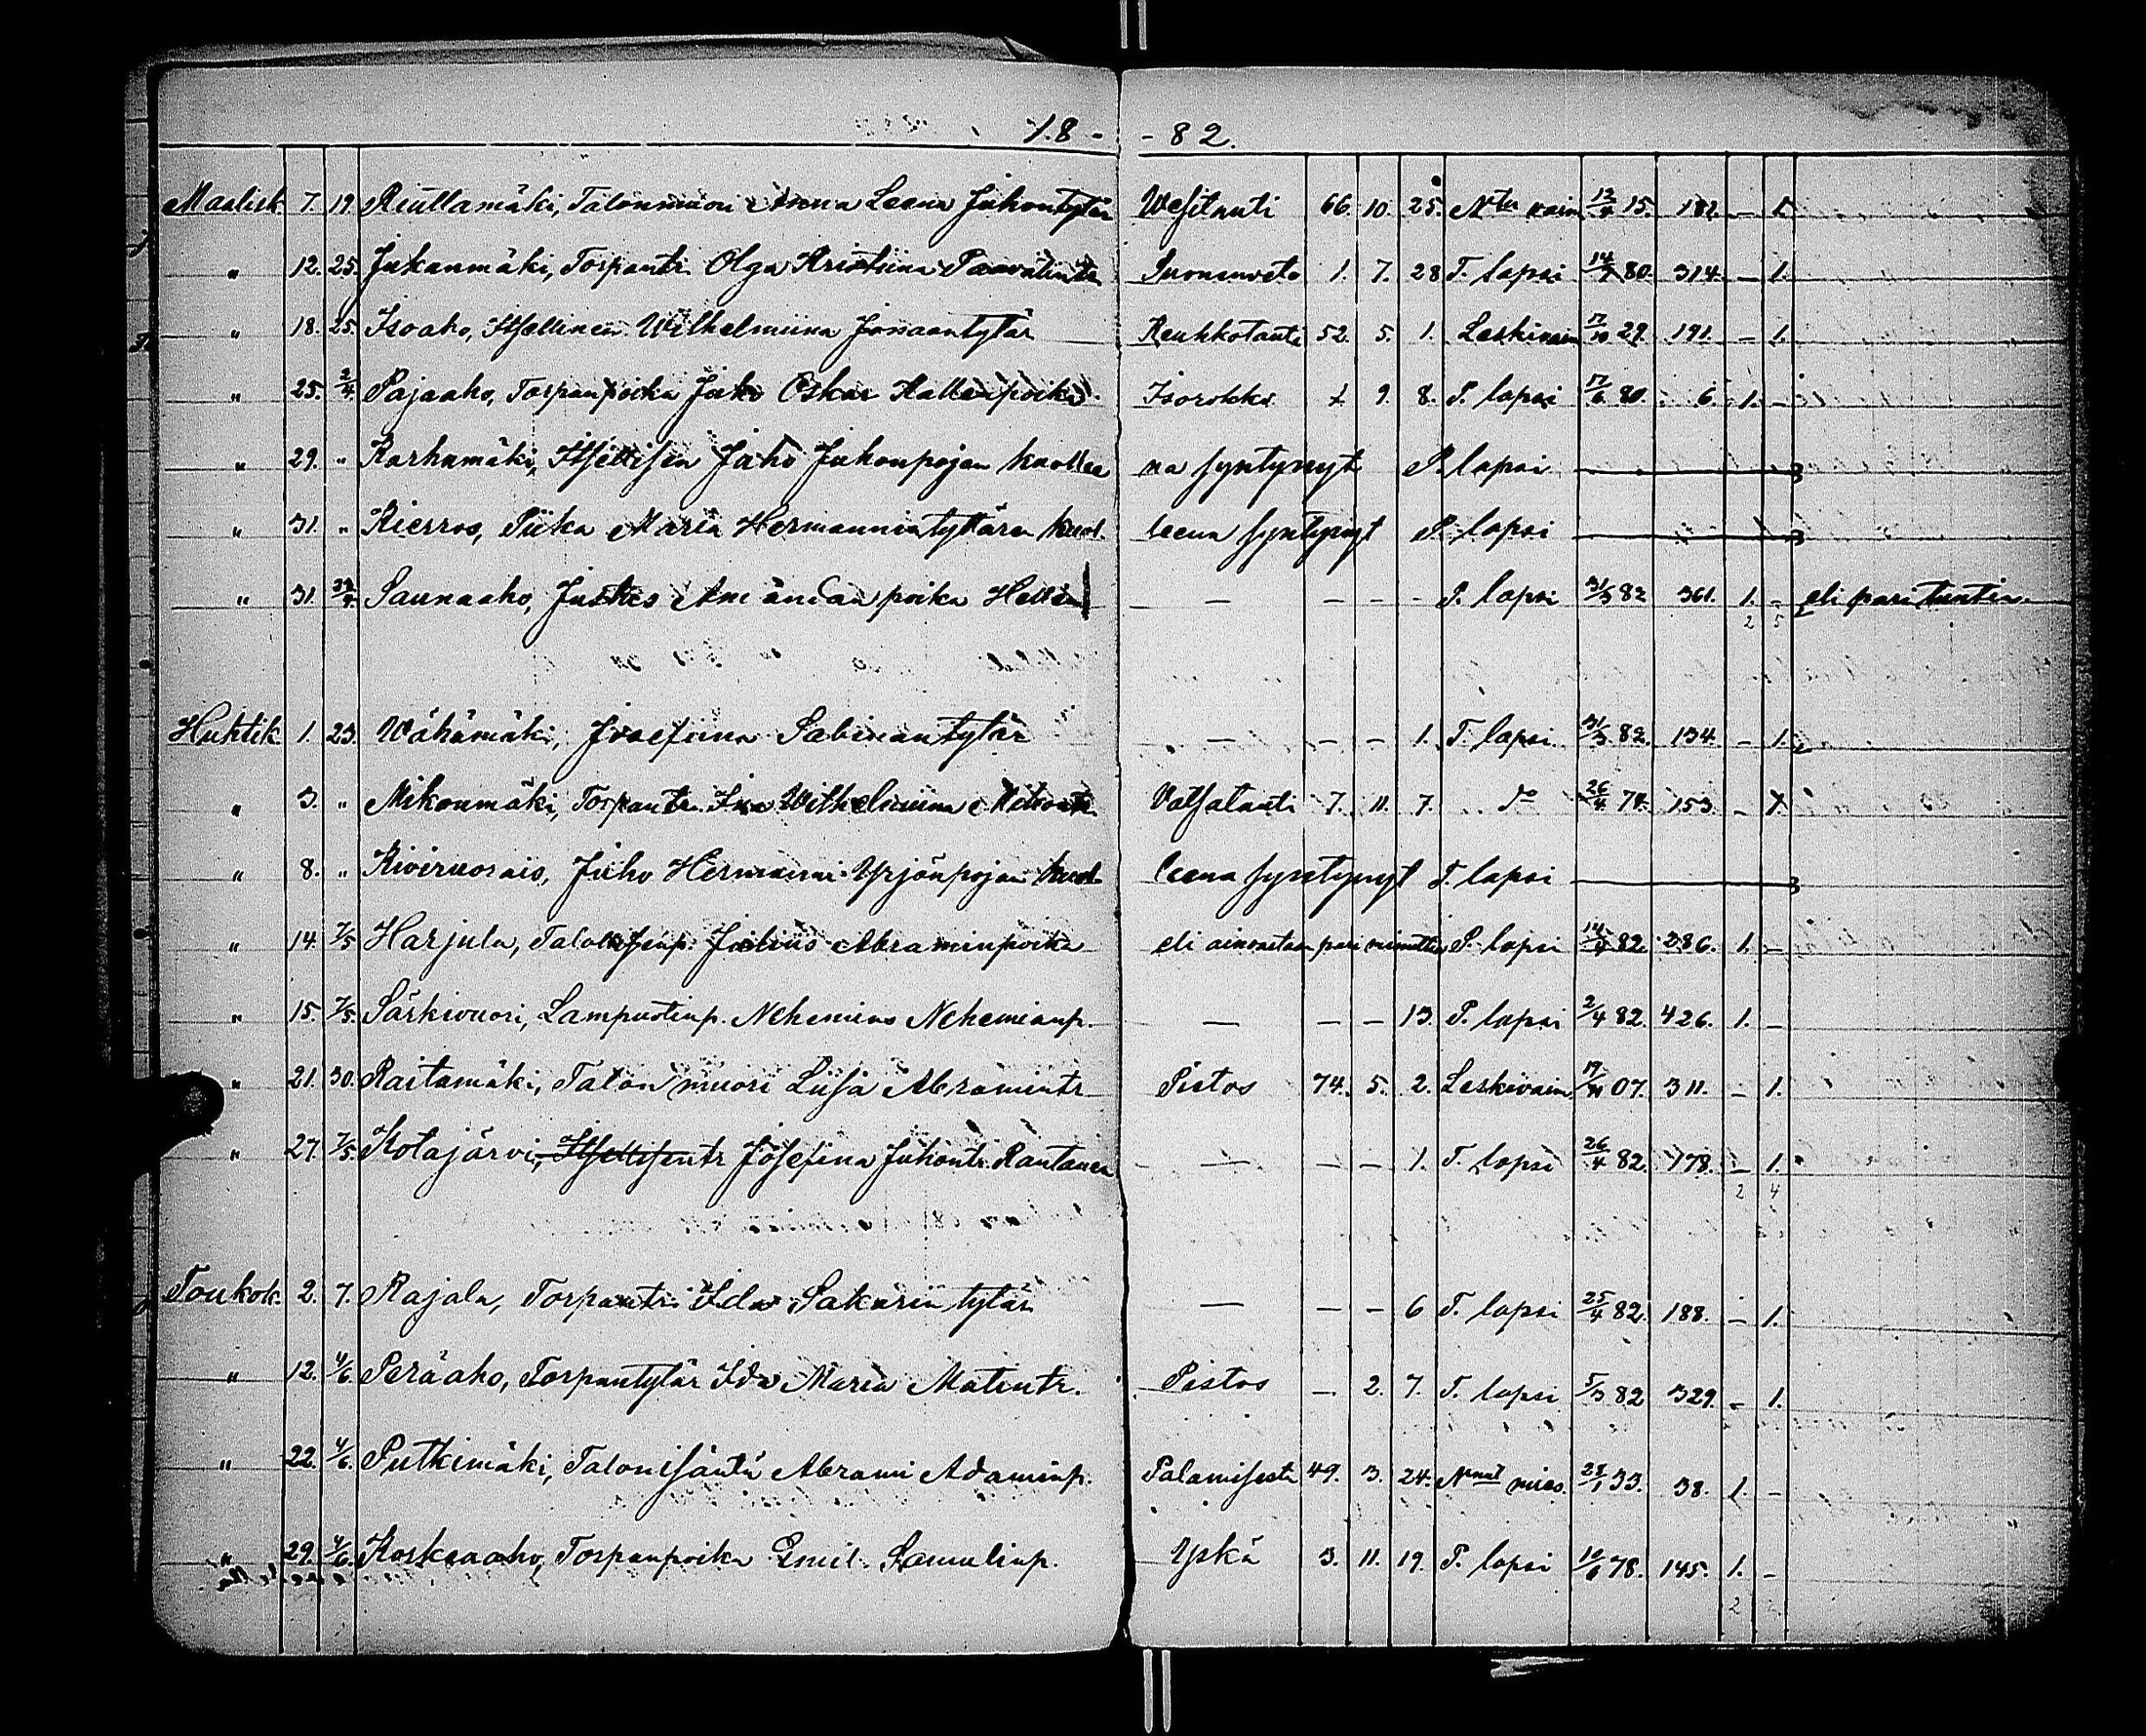 18- -82.
Maalisk. 7. 19. Riuttamäki, Talonmuori Anna Leena Juhontytär Wesitauti 66. 10. 25. N:tu vaim 12/4 15. 182. - 1.
" 12. 25. Jukanmäki, Torpantr. Olga Kristiina Paavalintr. Suonenveto 1. 7. 28 T. lapsi 14/7 80. 314. - 1.
" 18. 25. Isoaho, Itsellinen Wilhelmiina Joonaantytär Keuhkotauti 52. 5. 1. Leskivaim 17/10 29. 191. - 1.
" 25. 2/4 Pajaaho, Torpanpoika Juho Oskar Kallenpoika Isorokko 1 9. 8. P. lapsi 17/6 80. 6. 1. -
" 29. " Karhumäki, Itsellisen Juho Juhonpojan kuollee na syntynyt P. lapsi
" 31. " Kierros, Piika Maria Hermannintyttären kuol. leena syntynyt P. lapsi
" 31. Saunaaho, Justus Amandanpoika P. lapsi 31/3 82 361. 1. - eli pari tuntia.
2 5
Huhtik. 1. 23. Wähämäki, Josefiina Sabinantytär - - - 1. T. lapsi 31/3 82. 134. - 1.
" 3. " Mikonmäki, Torpantr. Ina Wilhelmiina Vatsatauti 7. 11. 7. do 26/4 74. 153. - 1.
" 8. " Kiviruorais, Juho Hermanni Yrjönpojan kuol- leena syntynyt T. lapsi
" 14. 7/5 Harjula, Talollisenp. Julius Abraminpoika eli ainoastaan pari minuttia P. lapsi 14/4 82 286. 1. -
" 15. 7/5. Särkivuori, Lampuotinp. Nehemias Nehemianp. - - - 13. P. lapsi 2/4 82. 426. 1. -
" 21. 30. Raitamäki, Talonmuori Liisa Abramintr. Pistos 74. 5. 2. Leskivaim 19/11 07. 311. - 1.
" 27. 7/5. Kotajärvi, Itsellisentr Josefina Juhontr. Rantanen - - - 1. T. lapsi 26/4 82. 178. - 1.
2 4
Toukok. 2. 7. Rajala, Torpantr. Ida Sakarintytär - - - 6 T. lapsi 25/4 82. 188. - 1.
" 12. 4/6. Peräaho, Torpantytär Ida Maria Matintr. Pistos - 2. 7. T. lapsi 5/3 82 329. - 1.
" 22. 4/6. Putkimäki, Talonisäntä Abrami Adaminp. Palamisesta 49. 3. 24. N:nut mies. 28/1 33. 38. 1. -
" 29. 4/6. Koskeaaho, Torpanpoika Emil Samulinp. Yskä 3. 11. 19. P. lapsi 10/6 78. 145. 1. -
2